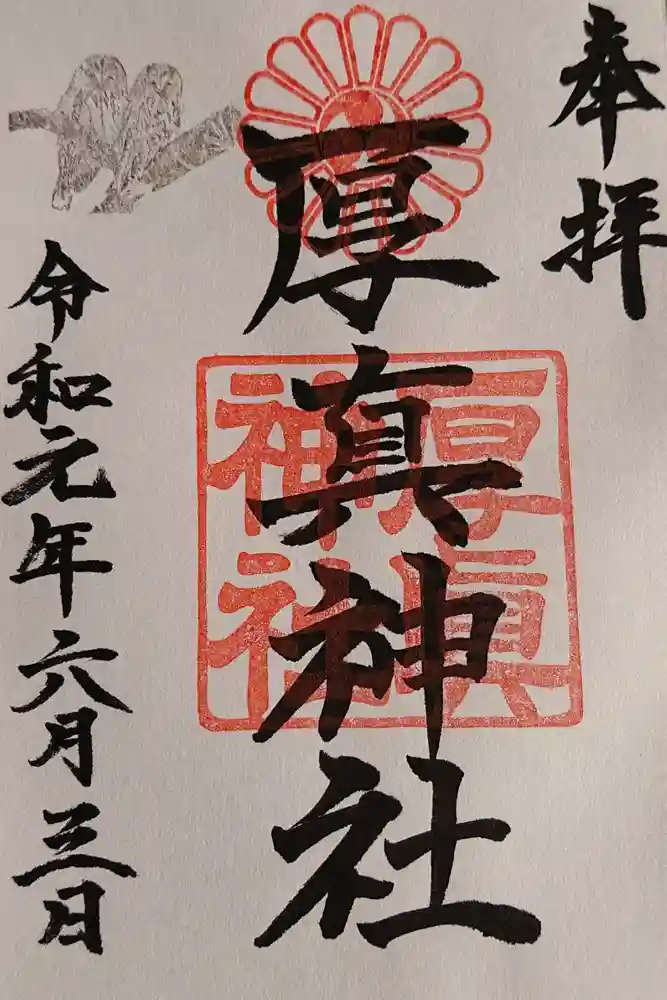 奉拝
厚真神社
厚眞神社
令和元年六月三日